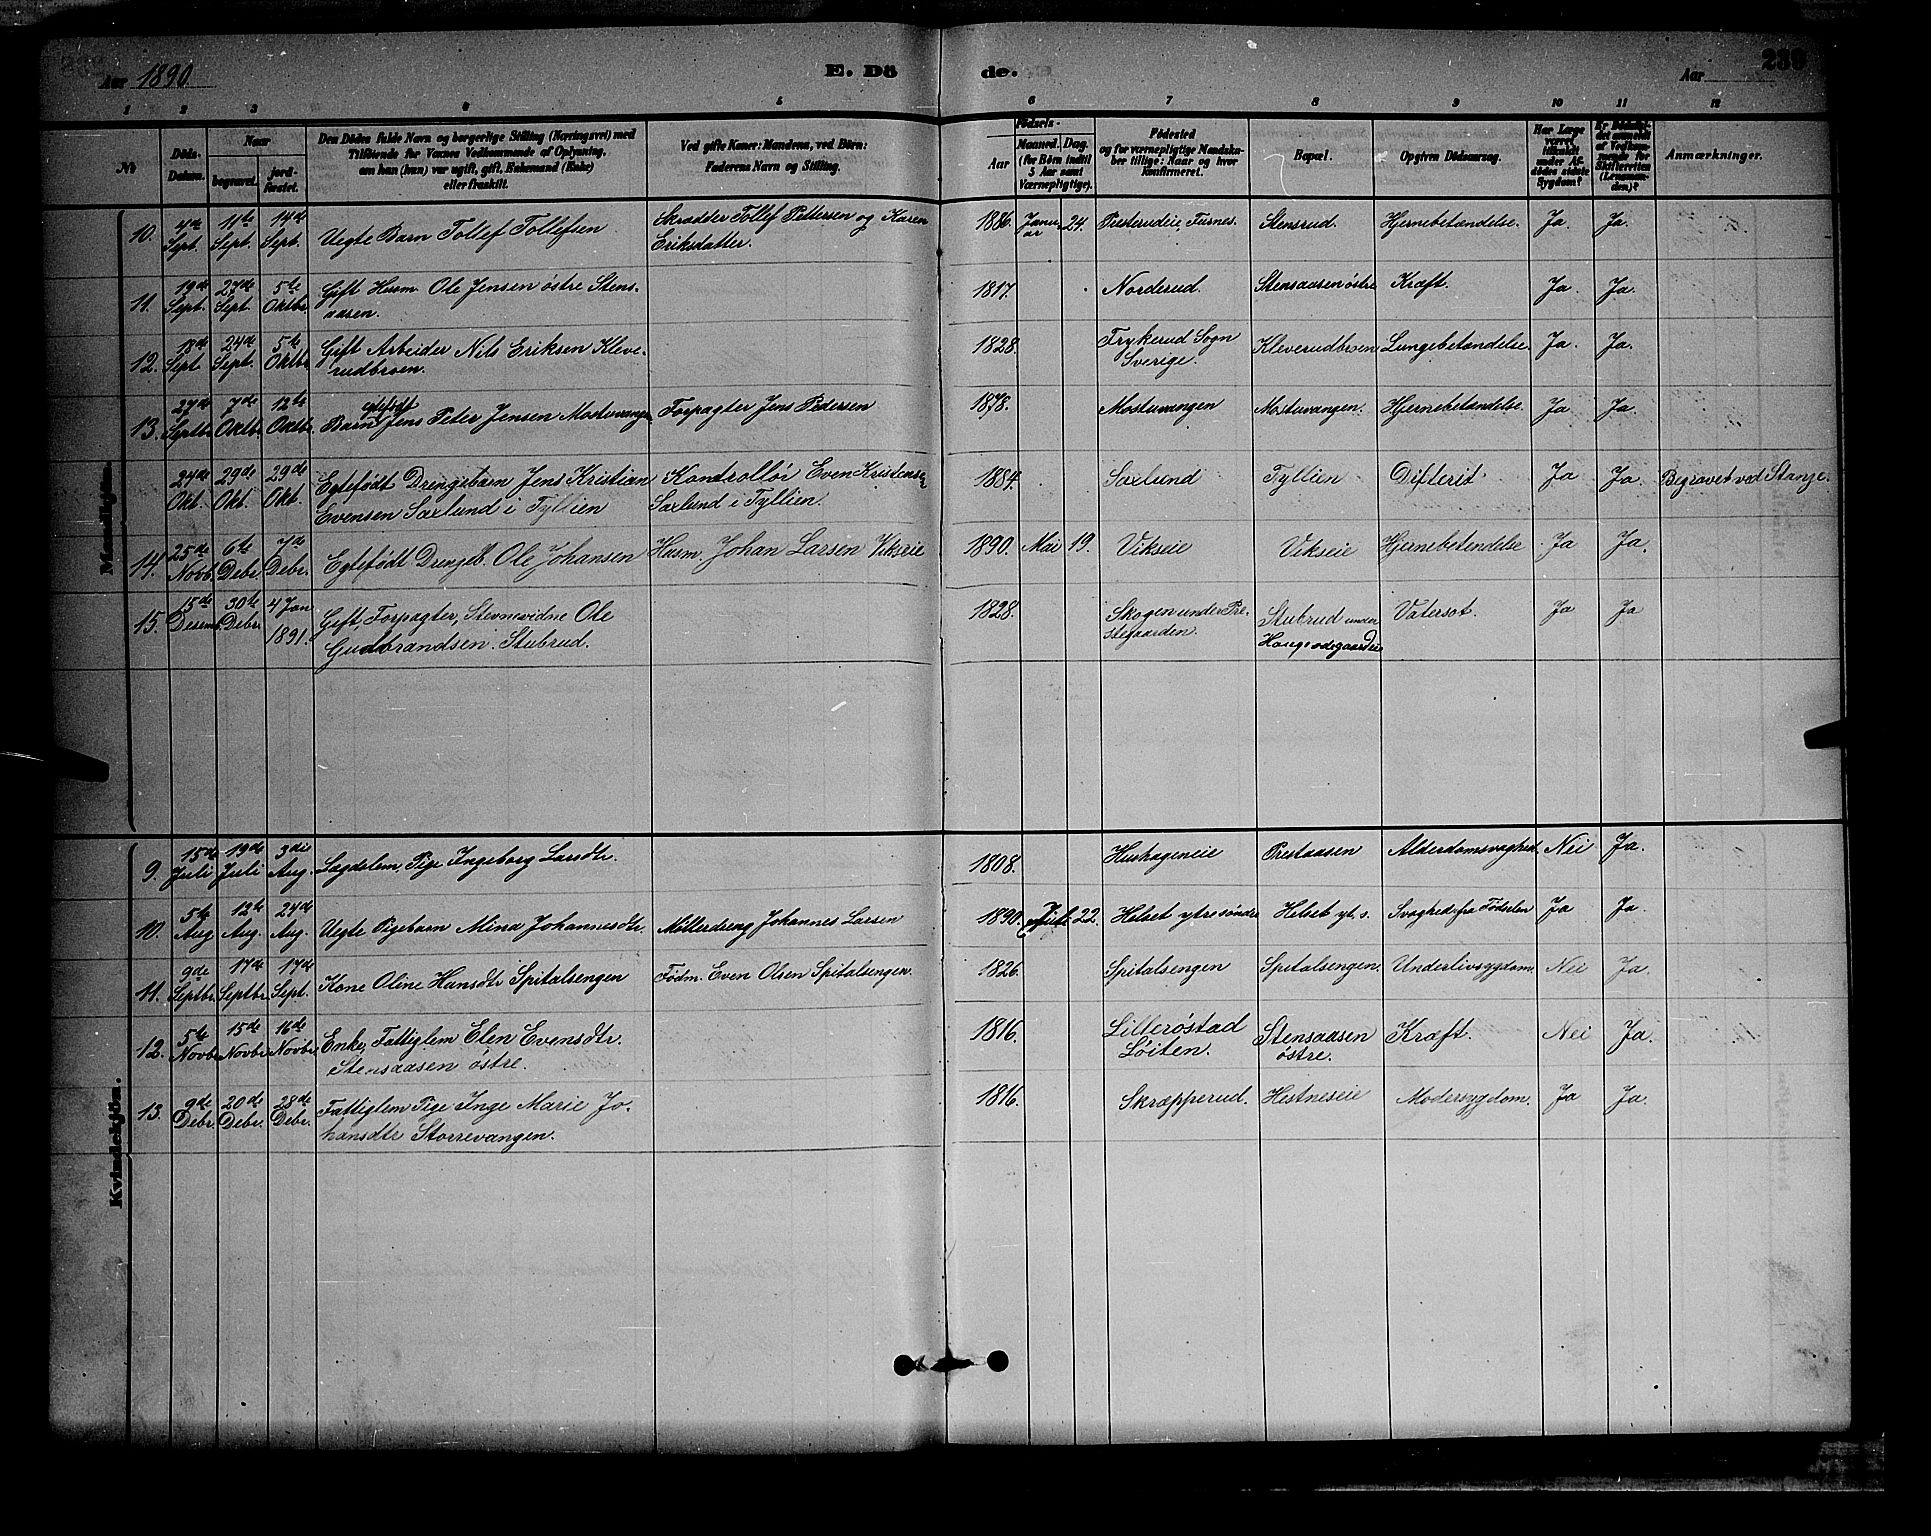 Aar 1890
E. Dö
de.
Aar
239
1 2 3 4 5 6 7 8 9 10 11 12
No
Döds-
Datum.
Naar
begravet.
jord-
fæstet.
Den Dödes fulde Navn og borgerlige Stilling (Næringsvei) med
Tilföiende for Voxnes Vedkommende af Oplysning,
om han (hun) var ugift, gift, Enkemand (Enke)
eller fraskilt.
Ved gifte Koner: Mandens, ved Börn:
Faderens Navn og Stilling.
Födsels-
Aar
Maaned. Dag.
(for Börn indtil
5 Aar samt
Værnepligtige).
Födested
og for værnepligtige Mandska-
ber tillige: Naar og hvor
konfirmeret.
Bopæl.
Opgiven Dödsaarsag.
Har Læge
været
tilkaldt
under Af-
dödes sidste
Sygdom?
Er Dödsfal-
det anmeldt
af Vedkom-
mende for
Skifteretten
(Lensman-
den)?
Anmærkninger.
Mandkjön.
10. 4de Sept. 11te Sept. 14de Sept. Uegte Barn Tollef Tollefsen Skrædder Tollef Pettersen og Karen
Eriksdatter. 1886. Janu-
ar 24. Presterudeie, Furnes. Stensrud. Hjernebetændelse. Ja. Ja.
11. 19de Sept. 27de Sept 5te Oktbr. Gift Husm. Ole Jensen østre Stens-
aasen. 1817. Norderud. Stensaasen østre Kræft. Ja. Ja.
12. 18de Sept 24de Sept. 5te Oktbr. Gift Arbeider Nils Eriksen Kleve-
rudbroen. 1828. Frykerud Sogn
Sverige. Kleverudbroen Lungebetændelse. Ja. Ja.
13. 27de Septbr. 7de Oktbr. 12te Oktbr. egtefødt
Barn Jens Peter Jensen Mostuvangen Forpagter Jens Pedersen 1878. Mostuvangen Mostuvangen. Hjernebetændelse. Ja Ja.
24de Okt. 29de Okt. 29de Okt. Egtefødt Drengebarn Jens Kristian
Evensen Saxlund i Tyllien Kontrollør Even Kristensen
Saxlund i Tyllien. 1884. Saxlund Tyllien Difterit Ja Ja. Begravet ved Stange.
14. 25de Novb. 6te Debr. 7de Debr. Egtefødt Drengeb. Ole Johansen Husm. Johan Larsen Vikseie 1890. Mai 19. Vikseie Vikseie Hjernebetendelse Ja Ja.
15. 15de Desemb. 30te Debr 4 Jan
1891. Gift, Forpagter, Stevnevidne Ole
Gudbrandsen. Stubrud. 1828. Skogen under Pre-
stegaarden. Stubrud under
Haugsodegaardeie Vatersot. Ja Ja
Kvindekjön.
9. 15de Juli 19de Juli 3die Aug. Lægdslem, Pige Ingeborg Larsdtr. 1808. Hushageneie Prestaasen Alderdomsvaghed. Nei Ja.
10. 5te Aug 12te Aug. 24de Aug. Uegte Pigebarn Mina Johannesdtr. Møllerdreng Johannes Larsen 1890. Juli 22. Helset ytre søndre Helset yt. s. Svaghed fra Fødselen Ja Ja.
11. 9de Septbr. 17de Septbr. 17de Sept. Kone Oline Hansdtr Spitalsengen Fødm. Even Olsen Spitalsengen. 1826. Spitalsengen Spitalsengen. Underlivssygdom. Nei Ja.
12. 5te Novbr. 15de Novbr. 16de Novbr. Enke, Fattiglem Elen Evensdtr.
Stensaasen østre. 1816. Lillerøstad
Løiten. Stensaasen
østre. Kræft. Nei Ja.
13. 9de Debr. 20de Debr. 28de Debr. Fattiglem, Pige Inge Marie Jo-
hansdtr Storrevangen. 1816. Skræpperud. Hestneseie Modersygdom. Ja Ja.